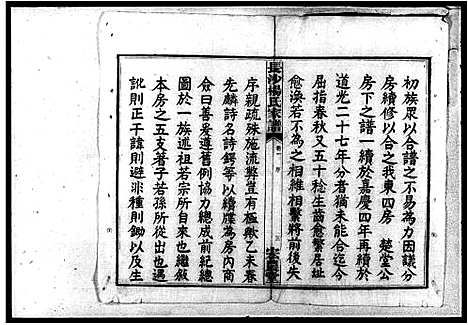 初族眾以合譜之不易為力因議分
房續修以合之我東四房 楚堂公
房下之譜一續於嘉慶四年再續於
道光二十七年分者猶未能合迄今
屈指春秋又五十稔生齒愈繁居址
愈渙若不為之相維相繫將前後失
長沙楊氏家譜
卷一 序
序親疏殊施流弊豈有極歟乙未春
先麟詩名詩鍔等以續牒為房內商
僉曰善爰遵舊例協力總成前紀總
圖於一族述祖若宗所自來也繼敘
本房之五支著子若孫所從出也若
訛則正干諱則避非種則鋤以及生